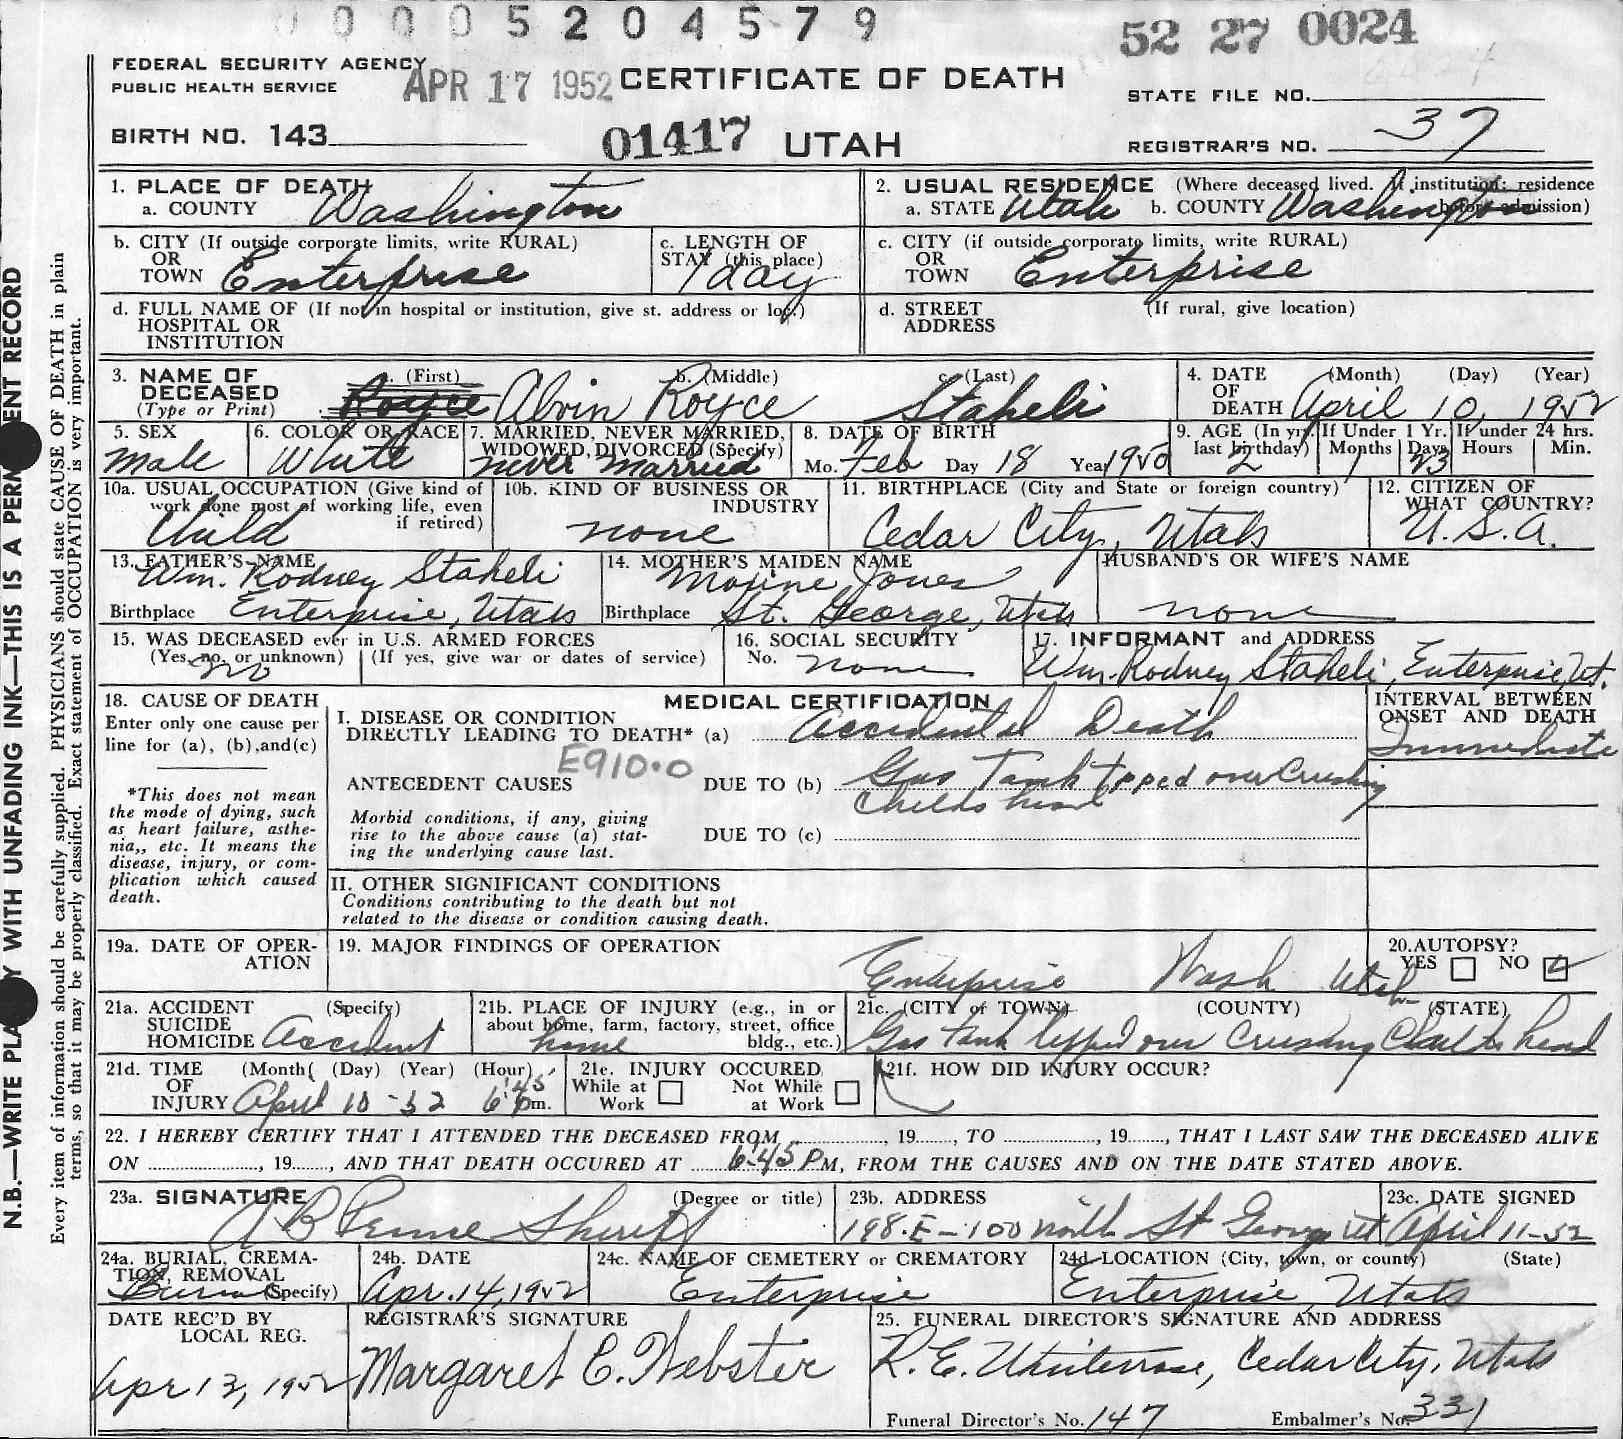 0 0 0 0 5 2 0 4 5 7 9
52 27 0024
FEDERAL SECURITY AGENCY
PUBLIC HEALTH SERVICE
APR 17 1952
CERTIFICATE OF DEATH
STATE FILE NO.
BIRTH NO. 143
01417 UTAH
REGISTRAR'S NO. 37
N.B.—WRITE PLAINLY WITH UNFADING INK—THIS IS A PERMANENT RECORD
Every item of information should be carefully supplied. PHYSICIANS should state CAUSE OF DEATH in plain
terms, so that it may be properly classified. Exact statement of OCCUPATION is very important.
1. PLACE OF DEATH
a. COUNTY Washington
2. USUAL RESIDENCE (Where deceased lived. If institution: residence before admission)
a. STATE Utah b. COUNTY Washington
b. CITY (If outside corporate limits, write RURAL)
OR TOWN Enterprise
c. LENGTH OF STAY (this place) 1 day
c. CITY (if outside corporate limits, write RURAL)
OR TOWN Enterprise
d. FULL NAME OF (If not in hospital or institution, give st. address or loc.)
HOSPITAL OR
INSTITUTION
d. STREET ADDRESS (If rural, give location)
3. NAME OF DECEASED (Type or Print)
a. (First) b. (Middle) c. (Last)
Royce Alvin Royce Staheli
4. DATE OF DEATH (Month) (Day) (Year)
April 10, 1952
5. SEX Male
6. COLOR OR RACE White
7. MARRIED, NEVER MARRIED, WIDOWED, DIVORCED (Specify) Never Married
8. DATE OF BIRTH
Mo. Feb Day 18 Year 1950
9. AGE (In yrs. last birthday) 2
If Under 1 Yr. Months 1 Days 23
If under 24 hrs. Hours Min.
10a. USUAL OCCUPATION (Give kind of work done most of working life, even if retired)
Child
10b. KIND OF BUSINESS OR INDUSTRY
none
11. BIRTHPLACE (City and State or foreign country)
Cedar City, Utah
12. CITIZEN OF WHAT COUNTRY?
U.S.A.
13. FATHER'S NAME
Wm. Rodney Staheli
Birthplace Enterprise, Utah
14. MOTHER'S MAIDEN NAME
Maxine Jones
Birthplace St. George, Utah
HUSBAND'S OR WIFE'S NAME
none
15. WAS DECEASED ever in U.S. ARMED FORCES
(Yes, no, or unknown) (If yes, give war or dates of service)
no
16. SOCIAL SECURITY
No. none
17. INFORMANT and ADDRESS
Wm. Rodney Staheli, Enterprise, Ut.
18. CAUSE OF DEATH
Enter only one cause per
line for (a), (b), and (c)
*This does not mean
the mode of dying, such
as heart failure, asthe-
nia,, etc. It means the
disease, injury, or com-
plication which caused
death.
MEDICAL CERTIFICATION
I. DISEASE OR CONDITION
DIRECTLY LEADING TO DEATH* (a) Accidental Death
E910.0
ANTECEDENT CAUSES DUE TO (b) Gas Tank tipped over Crushing
Childs head
Morbid conditions, if any, giving
rise to the above cause (a) stat-
ing the underlying cause last.
DUE TO (c)
INTERVAL BETWEEN
ONSET AND DEATH
Immediate
II. OTHER SIGNIFICANT CONDITIONS
Conditions contributing to the death but not
related to the disease or condition causing death.
19a. DATE OF OPER-
ATION
19. MAJOR FINDINGS OF OPERATION
20. AUTOPSY?
YES NO
Enterprise Wash Utah
21a. ACCIDENT (Specify)
SUICIDE
HOMICIDE Accident
21b. PLACE OF INJURY (e.g., in or
about home, farm, factory, street, office
bldg., etc.)
home
21c. (CITY of TOWN) (COUNTY) (STATE)
Gas Tank tipped over Crushing Childs head
21d. TIME OF INJURY (Month) (Day) (Year) (Hour)
April 10 - 52 6:45 Pm.
21e. INJURY OCCURED
While at Work Not While at Work
21f. HOW DID INJURY OCCUR?
22. I HEREBY CERTIFY THAT I ATTENDED THE DECEASED FROM , 19 , TO , 19 , THAT I LAST SAW THE DECEASED ALIVE
ON , 19 , AND THAT DEATH OCCURED AT 6:45 PM, FROM THE CAUSES AND ON THE DATE STATED ABOVE.
23a. SIGNATURE (Degree or title)
A B Sheriff
23b. ADDRESS
198. E - 100 north St George Ut
23c. DATE SIGNED
April 11-52
24a. BURIAL, CREMA-
TION, REMOVAL
(Specify) Burial
24b. DATE
Apr. 14, 1952
24c. NAME OF CEMETERY OR CREMATORY
Enterprise
24d. LOCATION (City, town, or county) (State)
Enterprise, Utah
DATE REC'D BY
LOCAL REG.
Apr 13, 1952
REGISTRAR'S SIGNATURE
Margaret C. Webster
25. FUNERAL DIRECTOR'S SIGNATURE AND ADDRESS
R. E. Cedar City, Utah
Funeral Director's No. 147 Embalmer's No. 331